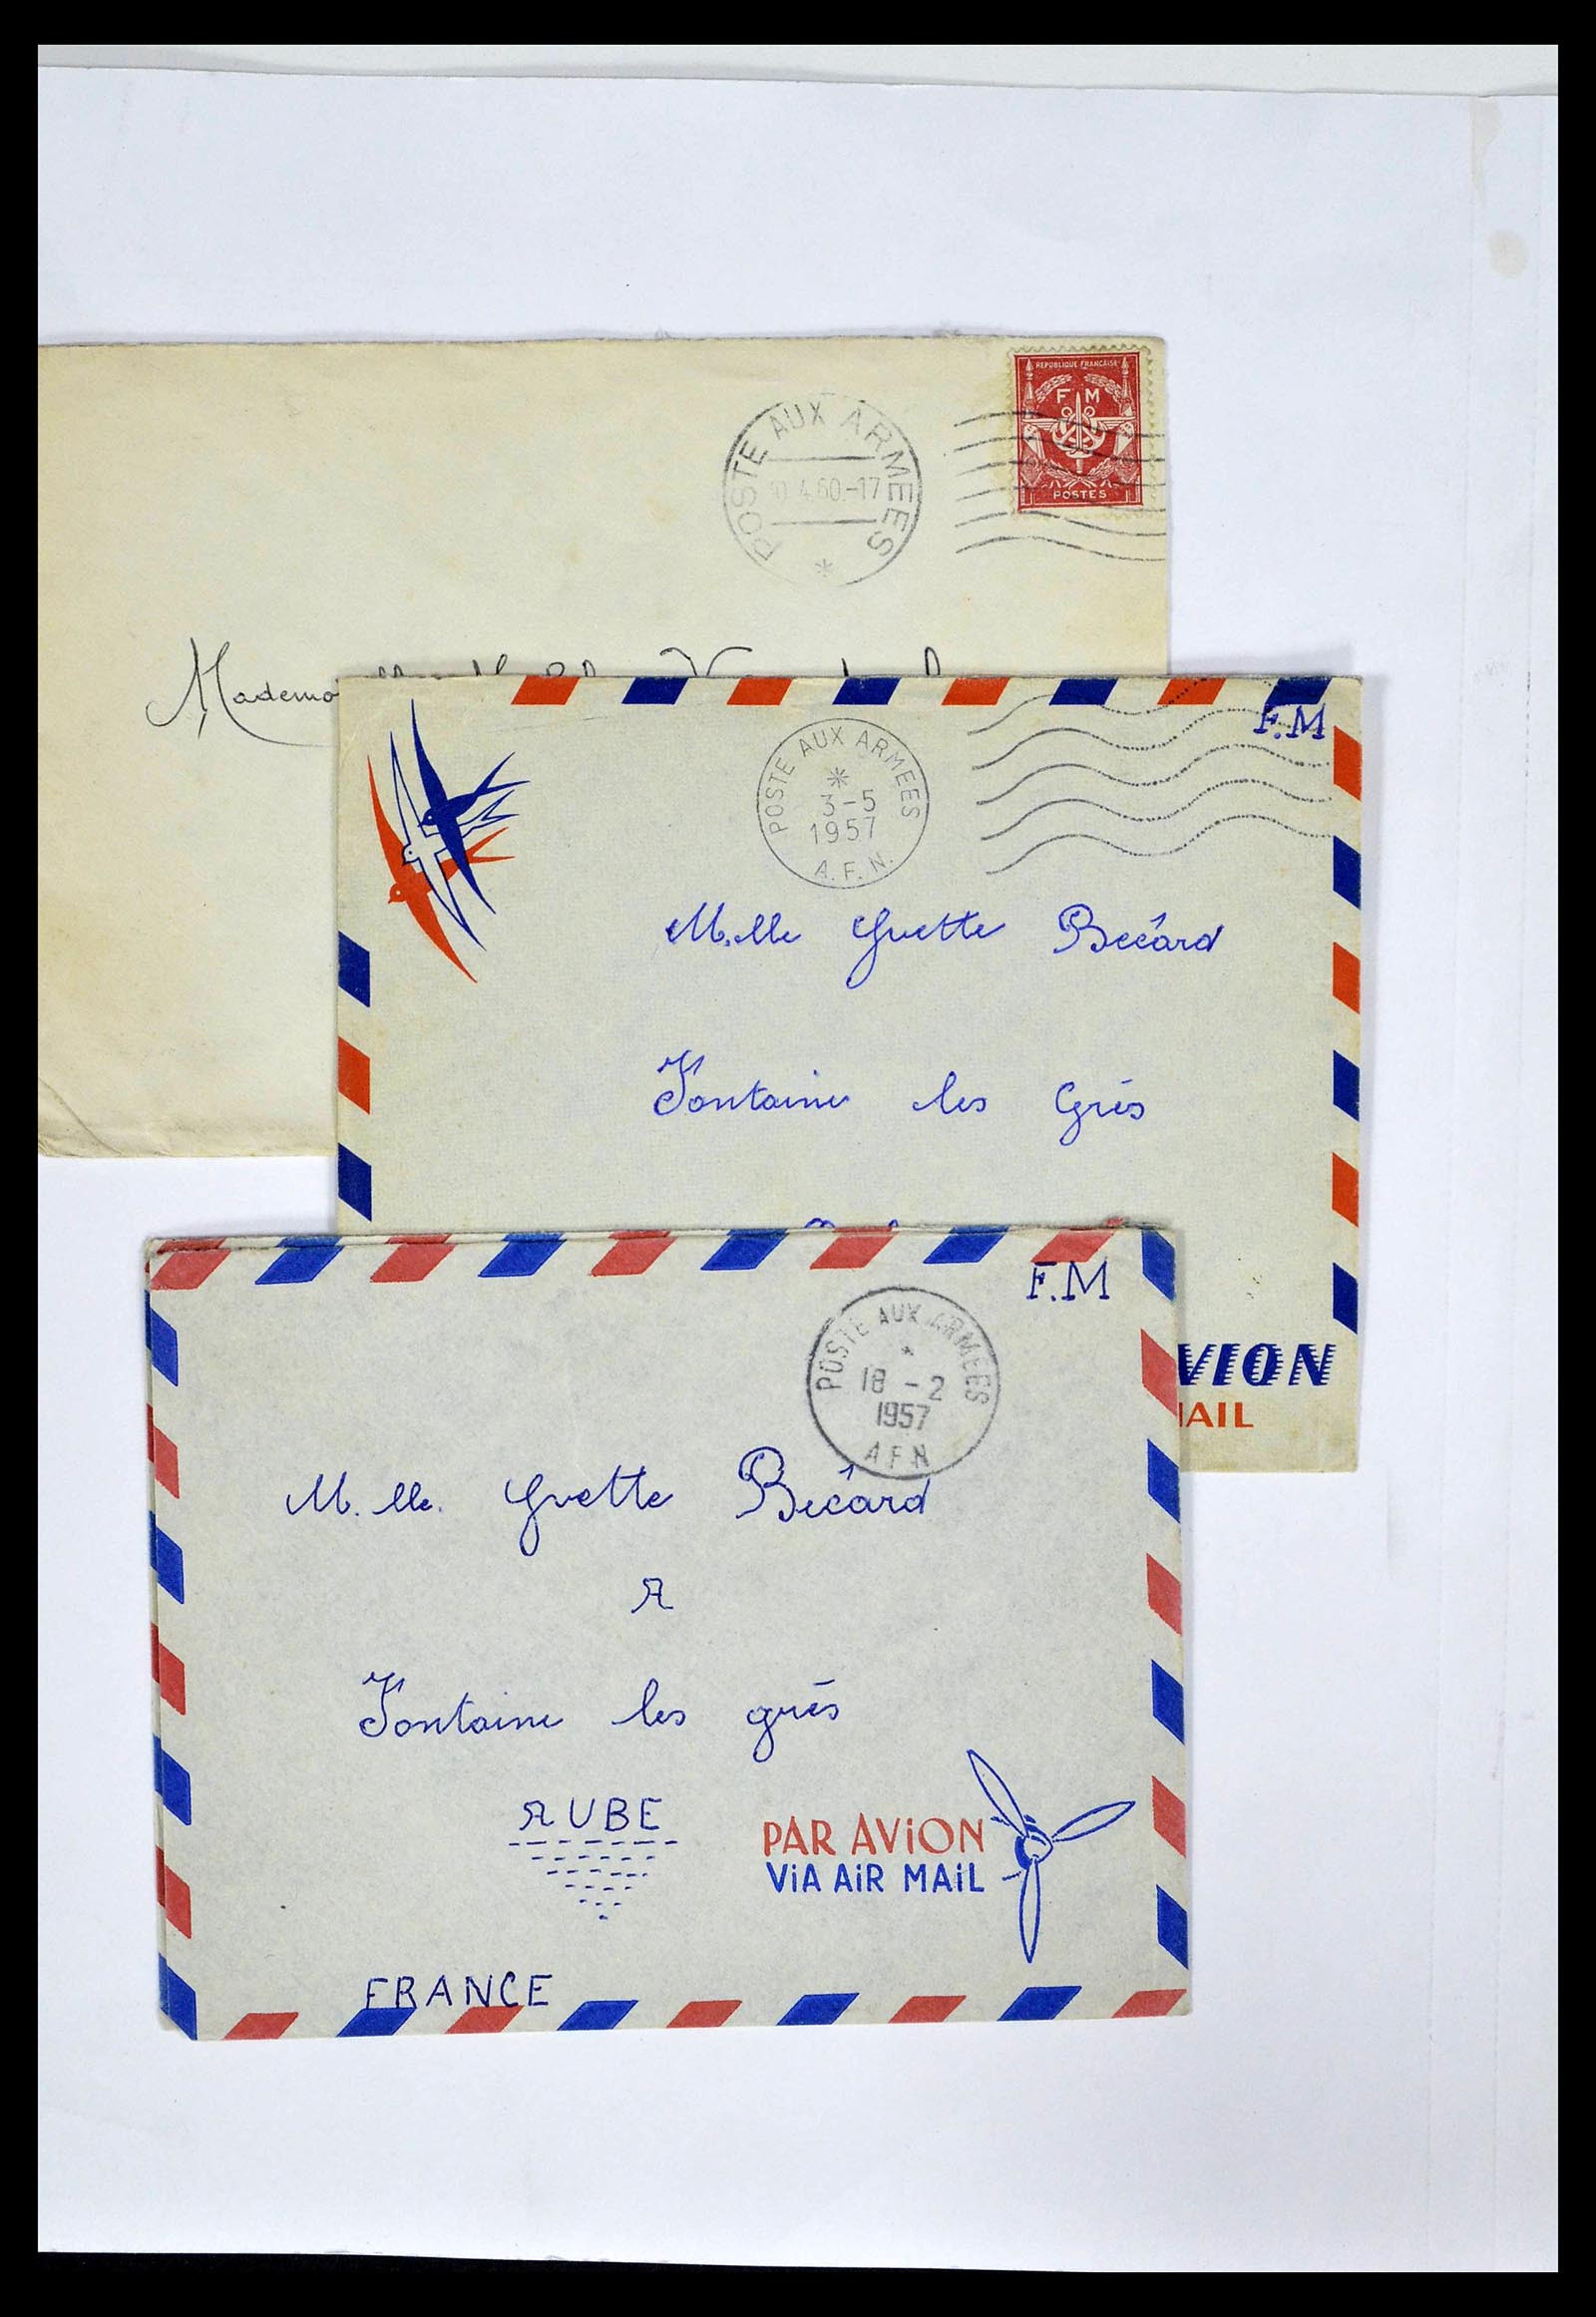 REPUBLIQUE FRANÇAISE
F M
POSTES
POSTE AUX ARMEES
4.60.-17
*
F.M
POSTE AUX ARMEES
*
3-5
1957
A.F.N.
M.lle Yvette Becârd
Fontaine les Grés
VION
AIL
F.M
POSTE AUX ARMEES
*
18-2
1957
AFN
M.lle. Yvette Becârd
A
Fontaine les grés
AUBE
PAR AViON
ViA AiR MAiL
FRANCE